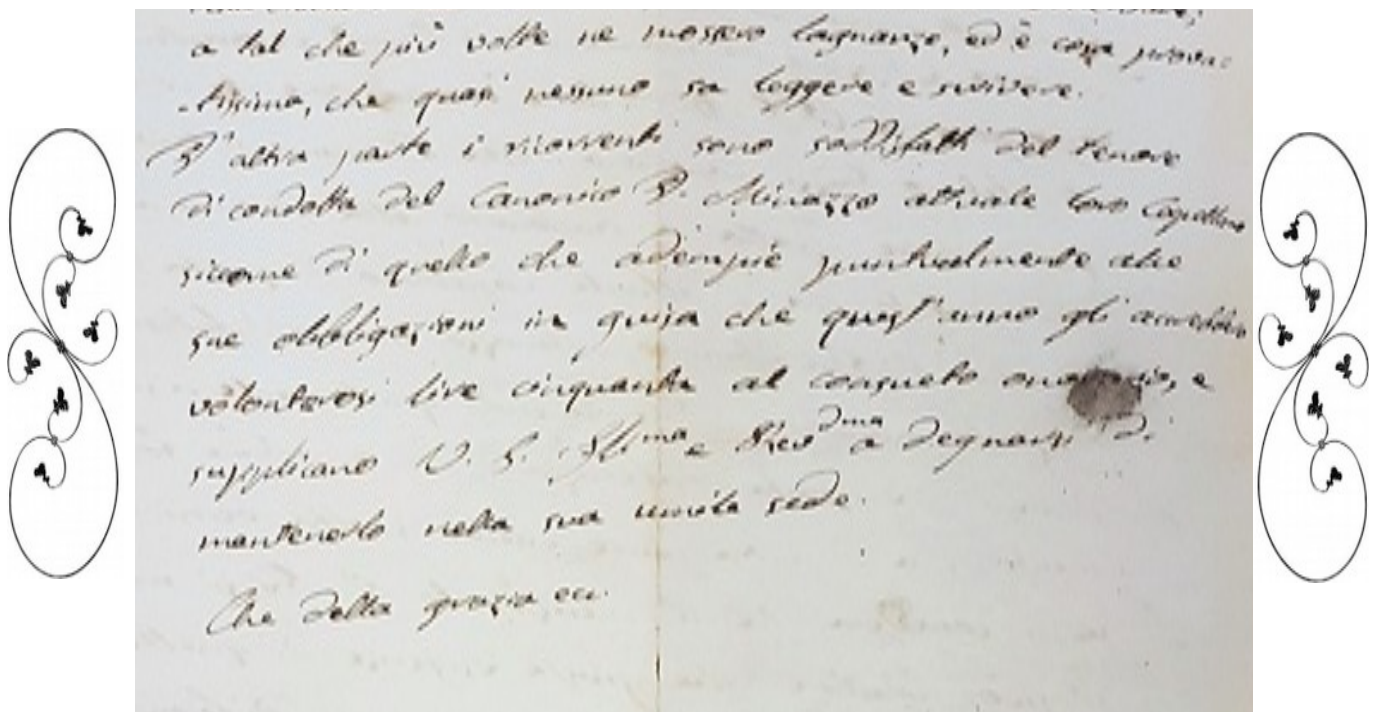 a tal che più volte ne mossero lagnanze, ed è cosa prova-
tissima, che quasi nessuno sa leggere e scrivere.
D'altra parte i ricorrenti sono soddisfatti del tenore
di condotta del Canonico D. Minazzo attuale loro Capellano
siccome di quello che adempié puntualmente alle
sue obbligazioni in guisa che quest'anno gli
volonterosi lire cinquanta al consueto onorario, e
supplicano V. S. Ill.ma e Rev.dma a degnarsi di
mantenerlo nella sua umile sede.
Che della grazia ecc.